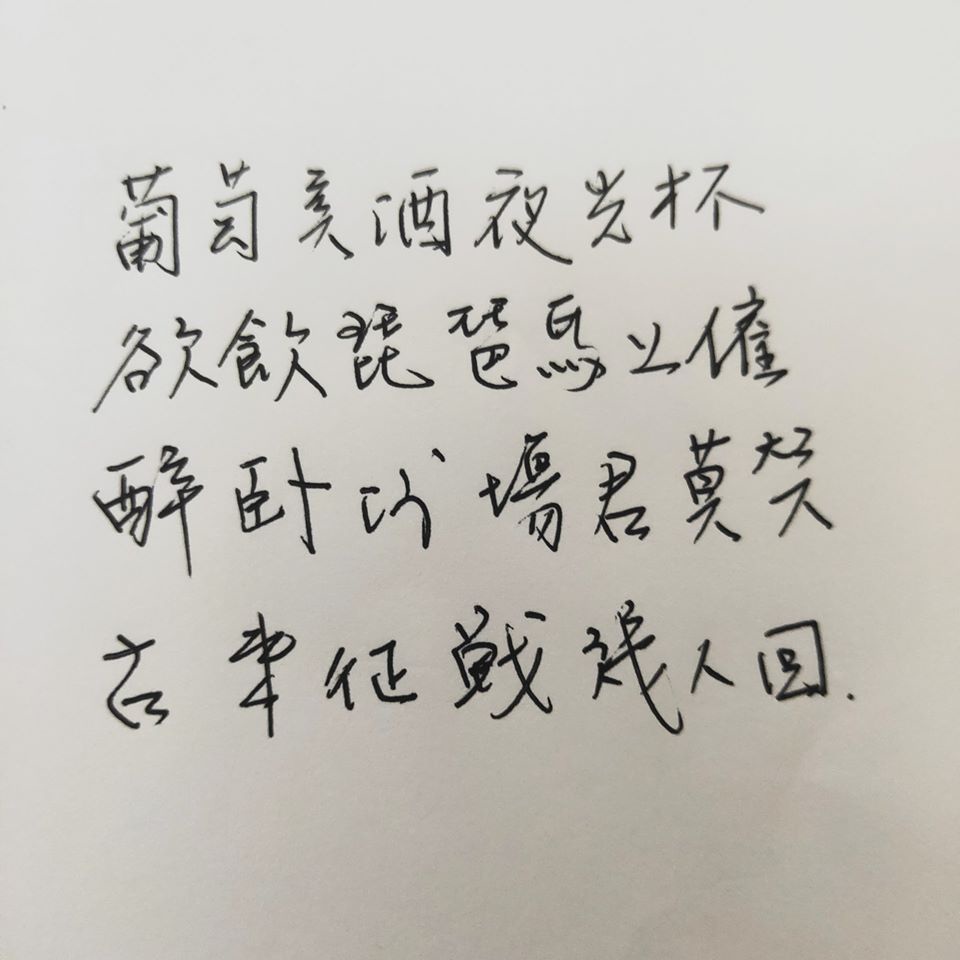 葡萄美酒夜光杯
欲飲琵琶馬上催
醉卧沙場君莫笑
古來征戰幾人回.